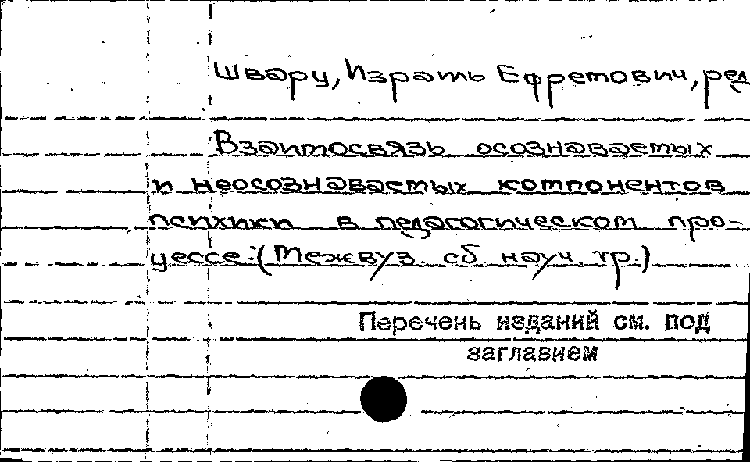 Шварц, Израиль Ефремович, ред
Взаимосвязь осознаваемых
и неосознаваемых компонентов
психики в педагогическом про-
цессе: (Межвуз. сб науч. тр.)
Перечень изданий см. под
заглавием